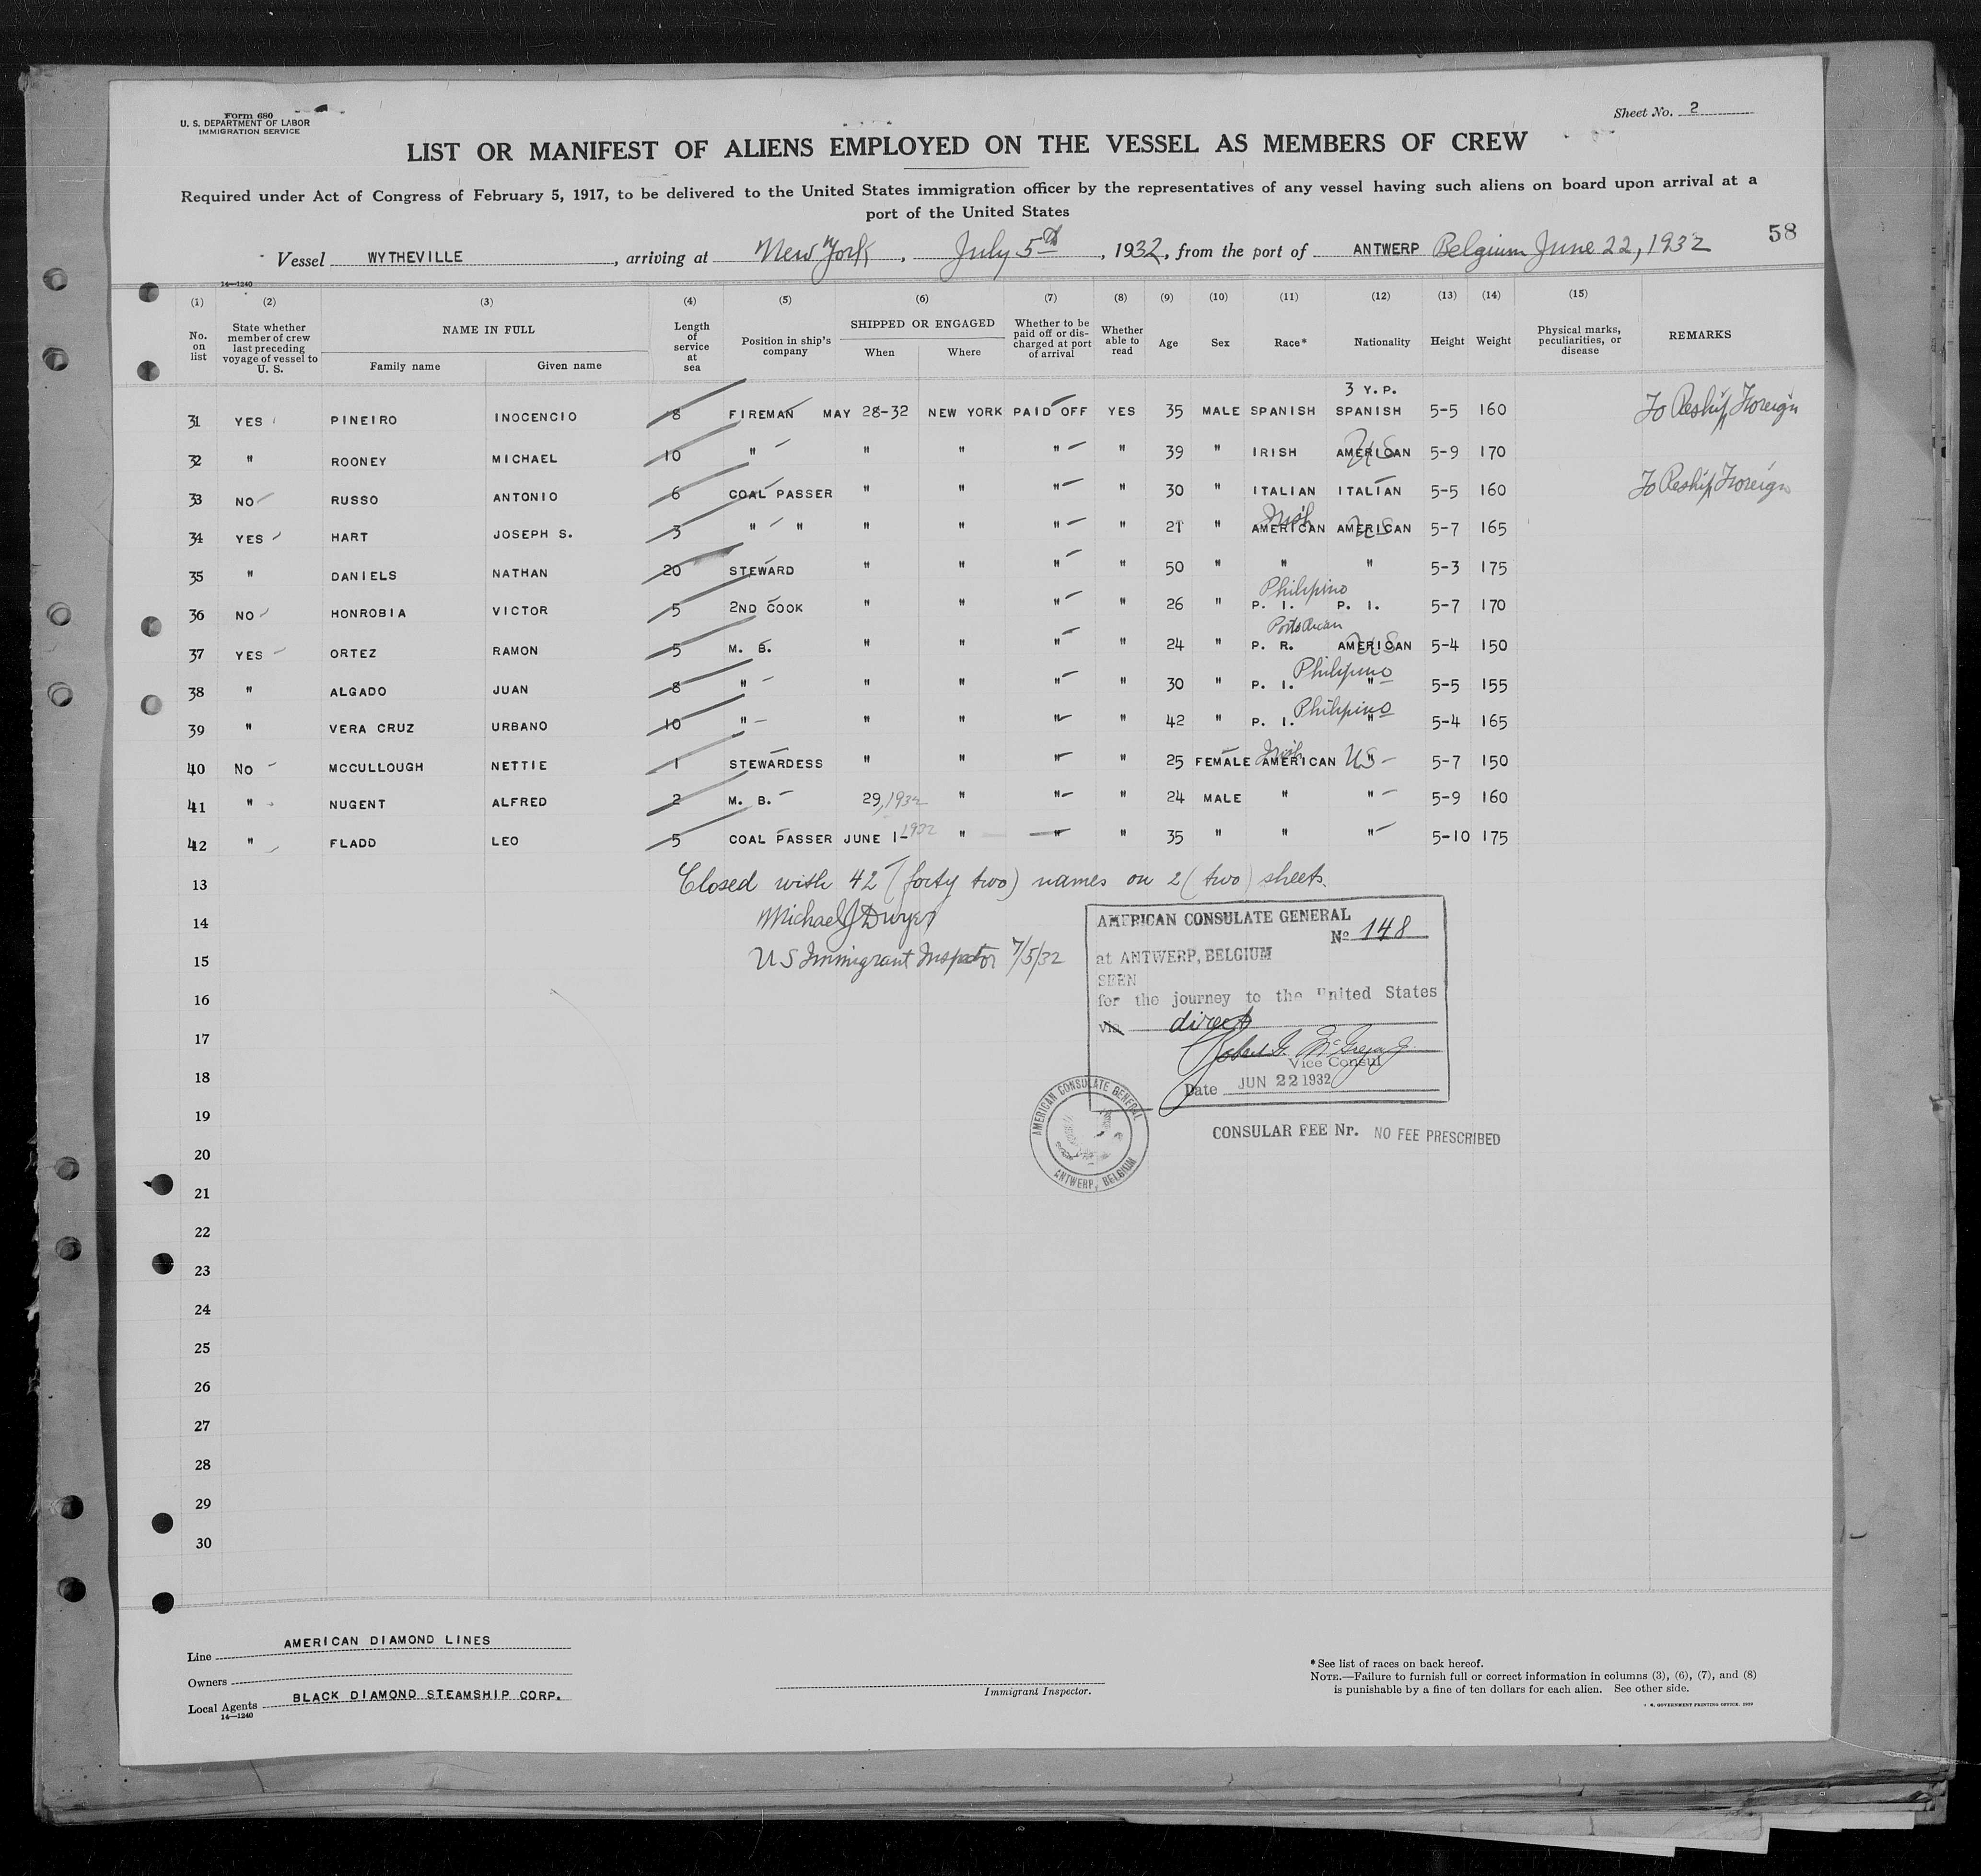 Form 680
U. S. DEPARTMENT OF LABOR
IMMIGRATION SERVICE
Sheet No. 2
LIST OR MANIFEST OF ALIENS EMPLOYED ON THE VESSEL AS MEMBERS OF CREW
Required under Act of Congress of February 5, 1917, to be delivered to the United States immigration officer by the representatives of any vessel having such aliens on board upon arrival at a
port of the United States
58
Vessel WYTHEVILLE, arriving at New York, July 5th, 1932, from the port of ANTWERP Belgium June 22, 1932
14—1240
(1) (2) (3) (4) (5) (6) (7) (8) (9) (10) (11) (12) (13) (14) (15)
No. on list
State whether member of crew last preceding voyage of vessel to U. S.
NAME IN FULL
Family name
Given name
Length of service at sea
Position in ship's company
SHIPPED OR ENGAGED
When
Where
Whether to be paid off or discharged at port of arrival
Whether able to read
Age
Sex
Race*
Nationality
Height
Weight
Physical marks, peculiarities, or disease
REMARKS
3 Y.P.
31 YES PINEIRO INOCENCIO 8 FIREMAN MAY 28-32 NEW YORK PAID OFF YES 35 MALE SPANISH SPANISH 5-5 160 To Reship Foreign
32 " ROONEY MICHAEL 10 " " " " " 39 " IRISH AMERICAN US 5-9 170
33 NO RUSSO ANTONIO 6 COAL PASSER " " " " 30 " ITALIAN ITALIAN 5-5 160 To Reship Foreign
34 YES HART JOSEPH S. 3 " " " " " " 21 " AMERICAN Irish AMERICAN US 5-7 165
35 " DANIELS NATHAN 20 STEWARD " " " " 50 " " " 5-3 175
36 NO HONROBIA VICTOR 5 2ND COOK " " " " 26 " P. I. Philipino P. I. 5-7 170
37 YES ORTEZ RAMON 5 M. B. " " " " 24 " P. R. Porto Rican AMERICAN US 5-4 150
38 " ALGADO JUAN 8 " " " " " 30 " P. I. Philipino " 5-5 155
39 " VERA CRUZ URBANO 10 " " " " " 42 " P. I. Philipino " 5-4 165
40 No MCCULLOUGH NETTIE 1 STEWARDESS " " " " 25 FEMALE AMERICAN Irish US " 5-7 150
41 " NUGENT ALFRED 2 M. B. 29, 1932 " " " 24 MALE " " 5-9 160
42 " FLADD LEO 5 COAL PASSER JUNE 1-1932 " " " 35 " " " 5-10 175
Closed with 42 (forty two) names on 2 (two) sheets.
13
Michael J Dwyer
14
US Immigrant Inspector 7/5/32
15
16
17
18
19
20
21
22
23
24
25
26
27
28
29
30
AMERICAN CONSULATE GENERAL
No 148
at ANTWERP, BELGIUM
SEEN
for the journey to the United States
via direct
Vice Consul
Date JUN 22 1932
AMERICAN CONSULATE GENERAL
ANTWERP, BELGIUM
CONSULAR FEE Nr. NO FEE PRESCRIBED
Line AMERICAN DIAMOND LINES
Owners
Local Agents BLACK DIAMOND STEAMSHIP CORP.
14—1240
Immigrant Inspector.
* See list of races on back hereof.
NOTE.—Failure to furnish full or correct information in columns (3), (6), (7), and (8)
is punishable by a fine of ten dollars for each alien. See other side.